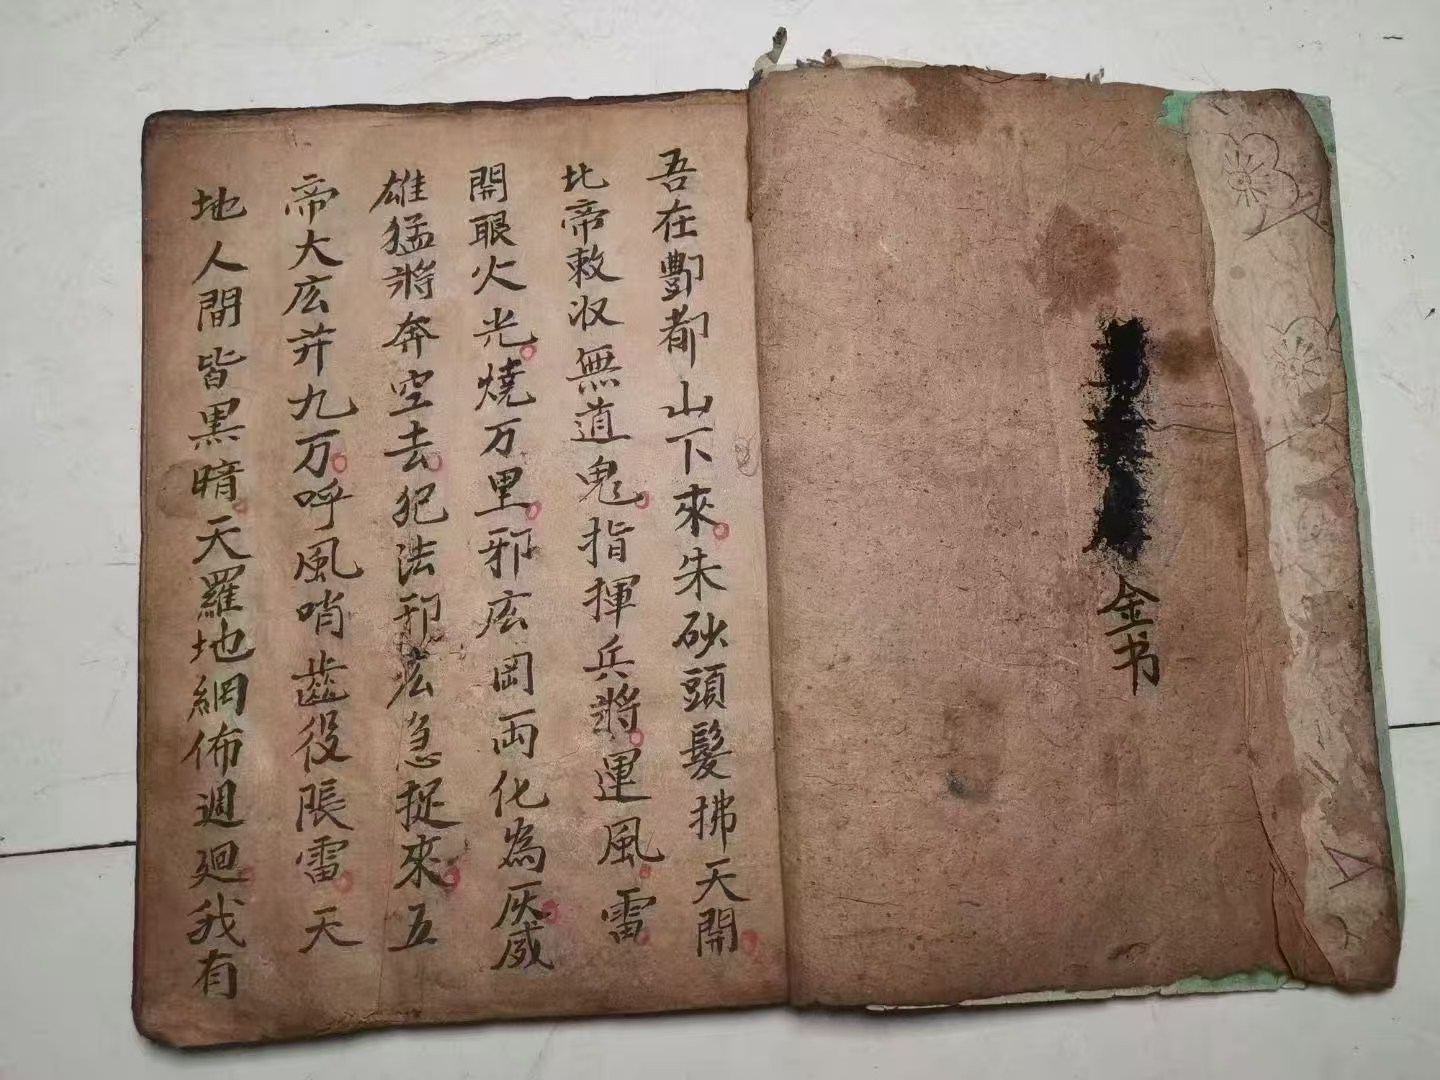 金书
吾在酆都山下來朱砂頭髮拂天開
北帝敕収無道鬼指揮兵將運風雷
開眼火光燒万里邪庅罔両化為灰威
雄猛將奔空去犯法邪庅急捉來五
帝大庅并九万呼風哨齒役張雷天
地人間皆黒暗天羅地網佈週廻我有